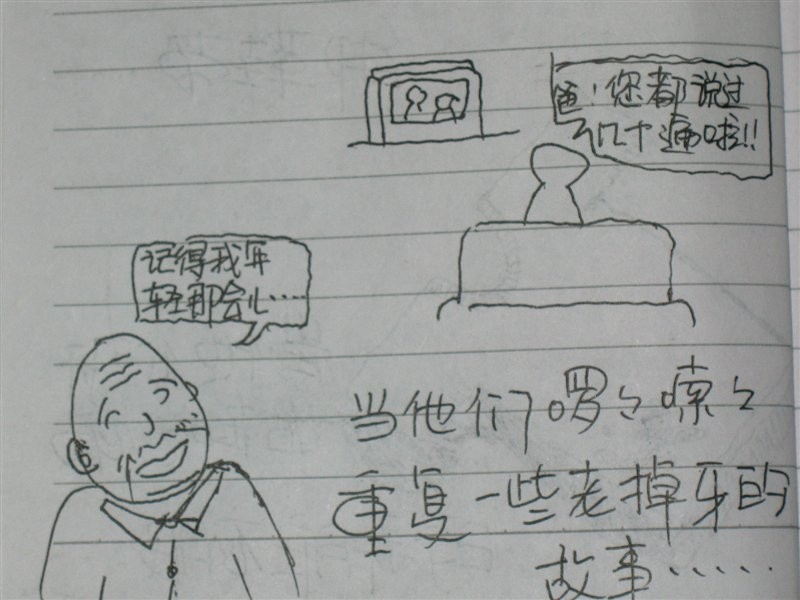 爸！您都说过
几十遍啦!!
记得我年
轻那会儿……
当他们啰々嗦々
重复一些老掉牙的
故事……